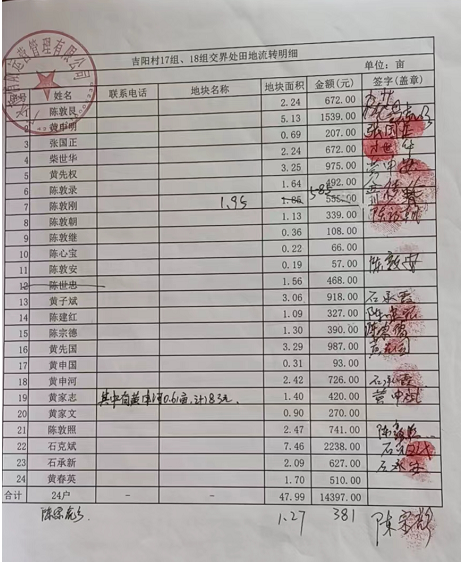 吉阳村17组、18组交界处田地流转明细
单位：亩
序号 姓名 联系电话 地块名称 地块面积 金额(元) 签字(盖章)
1 陈敦良 2.24 672.00
2 黄申明 5.13 1539.00
3 张国正 0.69 207.00 张国正
4 柴世华 2.24 672.00
5 黄先权 3.25 975.00
6 陈敦录 1.64 492.00
7 陈敦刚 1.95 1.85 585 555.00
8 陈敦朝 1.13 339.00
9 陈敦继 0.36 108.00
10 陈心宝 0.22 66.00
11 陈敦安 0.19 57.00
12 陈世忠 1.56 468.00
13 黄子斌 3.06 918.00 石承霞
14 陈建红 1.09 327.00
15 陈宗德 1.30 390.00
16 黄先国 3.29 987.00
17 黄申国 0.31 93.00
18 黄申河 2.42 726.00 石承霞
19 黄家志 1.40 420.00
20 黄家文 0.90 270.00
21 陈敦照 2.47 741.00
22 石克斌 7.46 2238.00
23 石承新 2.09 627.00
24 黄春英 1.70 510.00
合计 24户 - - 47.99 14397.00
1.27 381